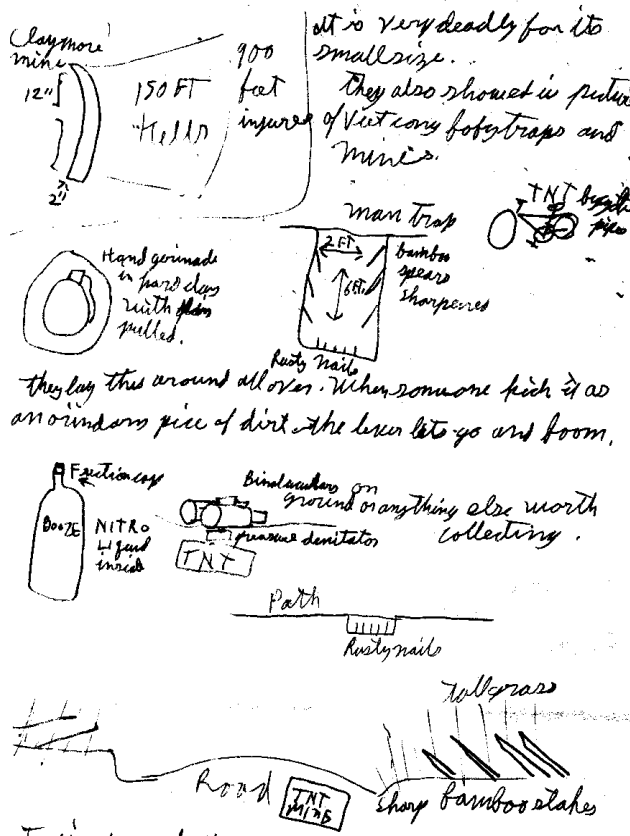 Claymore
mine
12"
2"
150 FT
Kills
900
feet
injures
It is very deadly for its
small size.
They also showed us picture
of Viet cong bobytraps and
mines.
man trap
2 FT
6 FT
bamboo
spears
sharpenes
Rusty Nails
TNT
pipes
Hand gernade
in hard clay
with
pulled.
they lay this around all over. When someone kick it as
an ordinary pice of dirt the lever lets go and boom.
Friction cap
BOOZE
NITRO
Liquid
inside
on
ground or anything else worth
collecting.
pressure
TNT
Path
Rusty nails
Tall grass
Road
TNT
MINE
sharp bamboo stakes